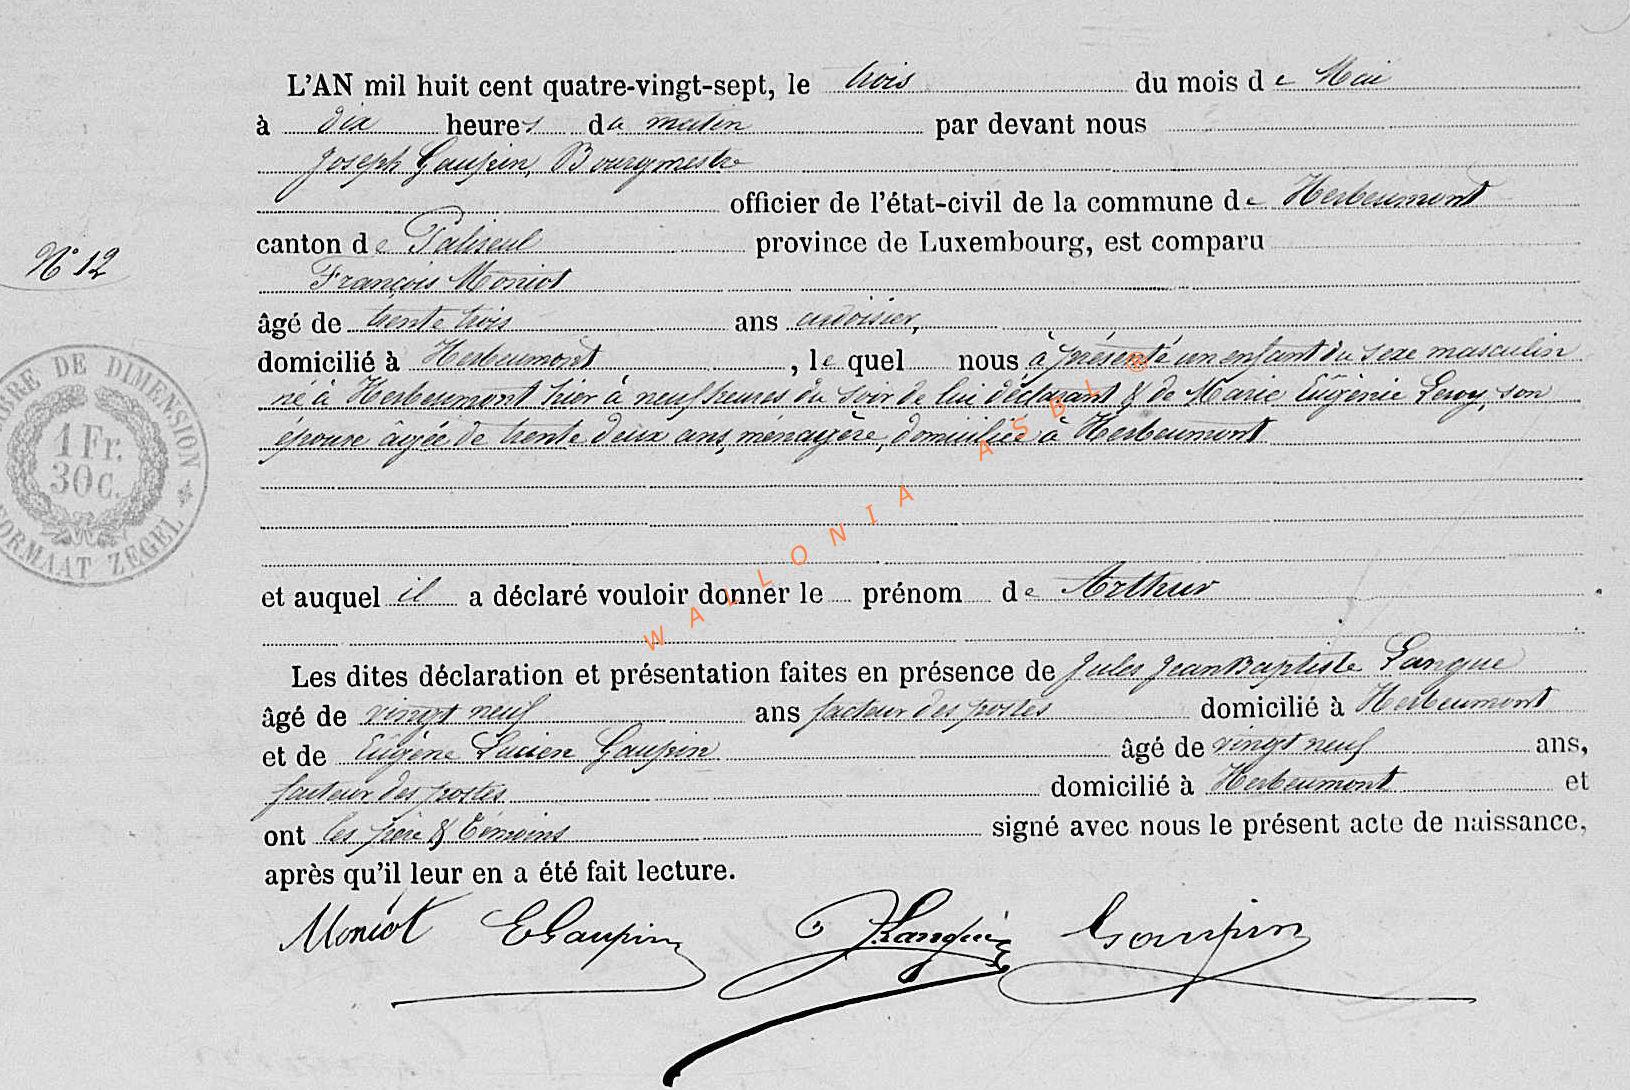 L'AN mil huit cent quatre-vingt-sept, le trois du mois de Mai
à dix heures du matin par devant nous
Joseph Gaupin, Bourgmestre
officier de l'état-civil de la commune de Herbeumont
canton de Paliseul province de Luxembourg, est comparu
N° 12
François Moniot
âgé de trente trois ans ardoisier,
domicilié à Herbeumont, le quel nous à présenté un enfant du sexe masculin
né à Herbeumont hier à neuf heures du soir de lui déclarant & de Marie Eugénie Leroy, son
épouse âgée de trente deux ans, ménagère, domiciliée à Herbeumont
TIMBRE DE DIMENSION
1 Fr.
30 C.
FORMAAT ZEGEL
et auquel il a déclaré vouloir donner le prénom de Arthur
Les dites déclaration et présentation faites en présence de Jules Jean Baptiste Langue
âgé de vingt neuf ans facteur des postes domicilié à Herbeumont
et de Eugène Lucien Gaupin âgé de vingt neuf ans,
facteur des postes domicilié à Herbeumont et
ont les père & témoins signé avec nous le présent acte de naissance,
après qu'il leur en a été fait lecture.
Moniot EGaupin JLangue Gaupin
WALLONIA ASBL ®